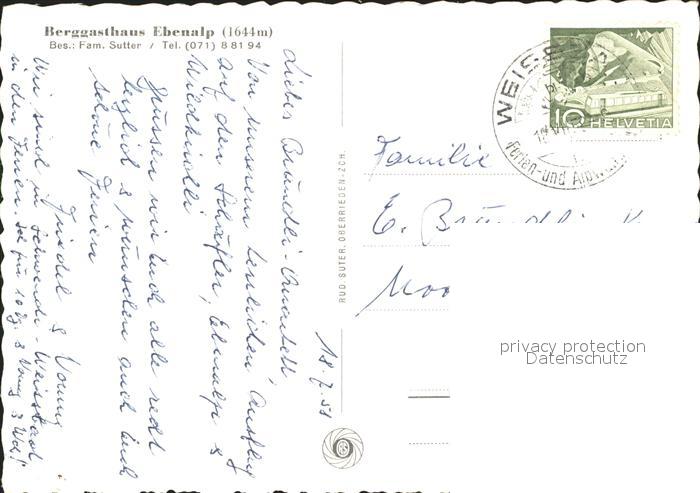 Berggasthaus Ebenalp (1644m)
Bes.: Fam. Sutter / Tel. (071) 8 81 94
18.7.51
Liebes Bründli-Quartett
Von unserem herrlichen Ausflug
auf den Schäfler, Ebenalp &
Wildkirchli
grüssen wir Euch alle recht
herzlich & wünschen auch Euch
schöne Ferien
Wir sind in Schwende-Weissbad
in den Ferien.
RUD. SUTER, OBERRIEDEN-ZCH.
WEISS
Ferien- und
10 HELVETIA
Familie
E.
Moo
privacy protection
Datenschutz